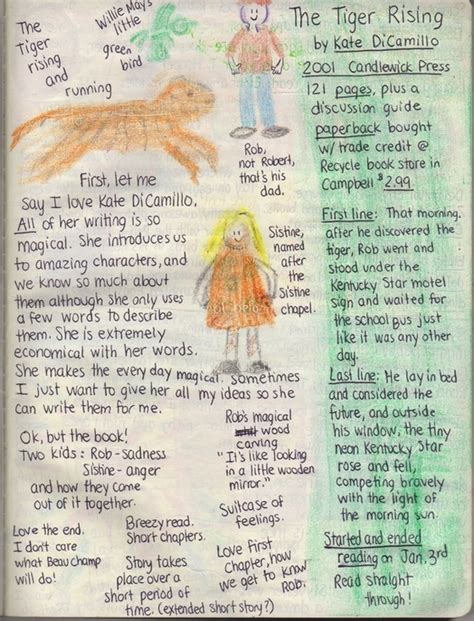 The
Tiger
rising
and
running
Willie May's
little
green
bird
Rob,
not Robert,
that's his
dad.
The Tiger Rising
by Kate DiCamillo
2001 Candlewick Press
121 pages, plus a
discussion guide
paperback bought
w/ trade credit @
Recycle book store in
Campbell $2.99
First line: That morning,
after he discovered the
tiger, Rob went and
stood under the
Kentucky Star motel
sign and waited for
the school bus just
like it was any other
day.
Last line: He lay in bed
and considered the
future, and outside
his window, the tiny
neon Kentucky Star
rose and fell,
competing bravely
with the light of
the morning sun.
Started and ended
reading on Jan. 3rd
Read straight
through!
First, let me
say I love Kate DiCamillo,
All of her writing is so
magical. She introduces us
to amazing characters, and
we know so much about
them although she only uses
a few words to describe
them. She is extremely
economical with her words.
She makes the every day magical. Sometimes
I just want to give her all my ideas so she
can write them for me.
Sistine,
named
after
the
Sistine
chapel.
Ok, but the book!
Two kids: Rob - sadness
Sistine - anger
and how they come
out of it together.
Rob's magical
wood
carving
"It's like looking
in a little wooden
mirror."
Suitcase of
feelings.
Love the end.
I don't care
what Beauchamp
will do!
Breezy read.
Short chapters.
Story takes
place over a
short period of
time. (extended short story?)
Love first
chapter, how
we get to know
Rob.